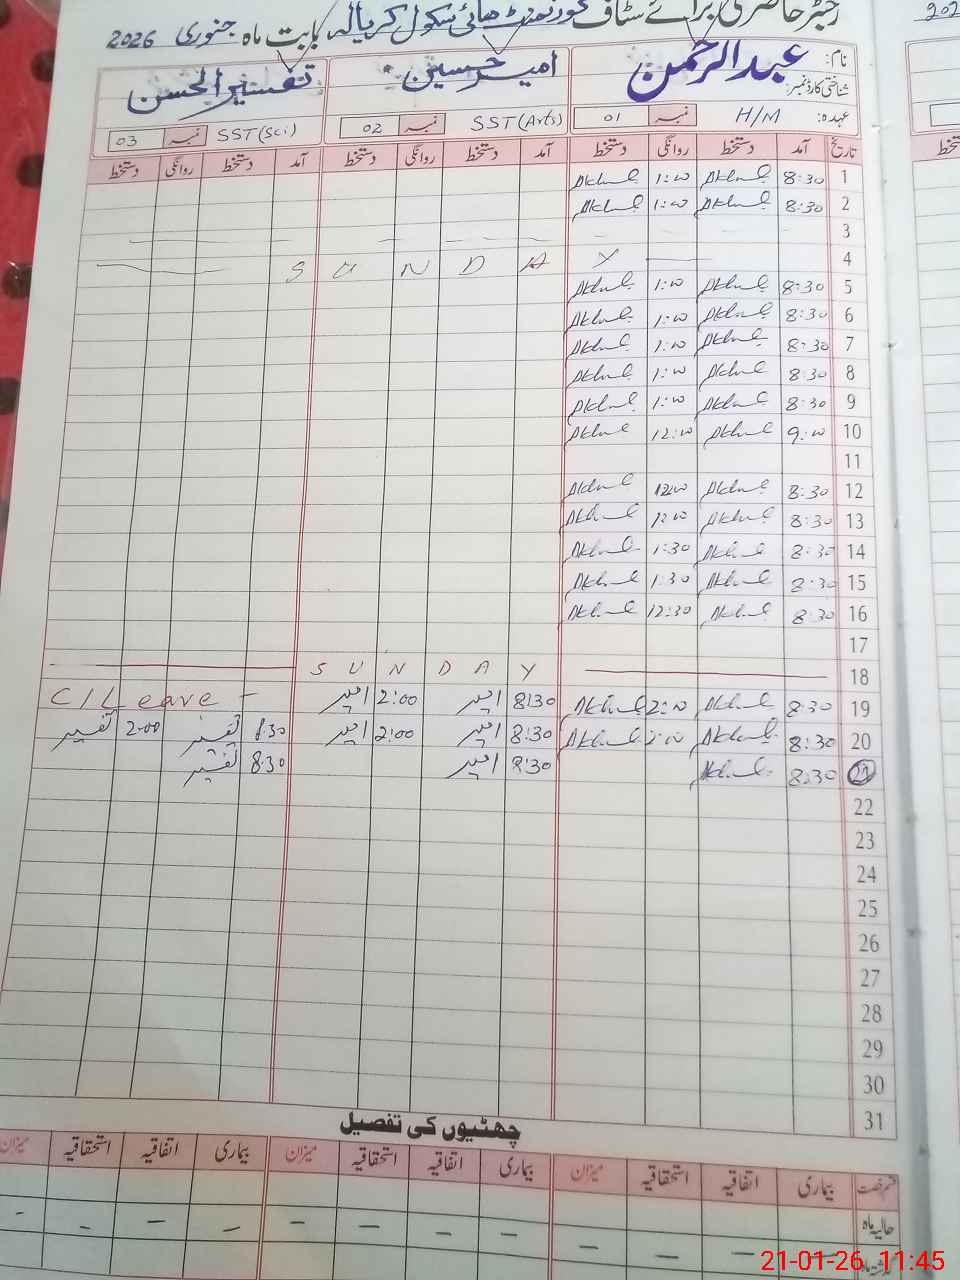 رجسٹر حاضری برائے سٹاف گورنمنٹ ہائی سکول کریالہ بابت ماہ جنوری 2026
نام: عبدالرحمن امیر حسین تفسیر الحسن
شناختی کارڈ نمبر:
عہدہ: H/M نمبر 01 SST(Arts) نمبر 02 SST(Sci) نمبر 03
تاریخ آمد دستخط روانگی دستخط آمد دستخط روانگی دستخط آمد دستخط روانگی دستخط
1 8:30 1:00
2 8:30 1:00
3
4 SUNDAY
5 8:30 1:00
6 8:30 1:00
7 8:30 1:00
8 8:30 1:00
9 8:30 1:00
10 9:00 12:00
11
12 8:30 12:00
13 8:30 12:00
14 8:30 1:30
15 8:30 1:30
16 8:30 12:30
17
18 SUNDAY
19 8:30 2:00 8:30 امیر 2:00 امیر C/Leave -
20 8:30 2:00 8:30 امیر 2:00 امیر 8:30 تفسیر 2:00 تفسیر
21 8:30 8:30 امیر 8:30 تفسیر
22
23
24
25
26
27
28
29
30
31
چھٹیوں کی تفصیل
قسم رخصت بیماری اتفاقیہ استحقاقیہ میزان بیماری اتفاقیہ استحقاقیہ میزان بیماری اتفاقیہ استحقاقیہ میزان
حالیہ ماہ
21-01-26, 11:45